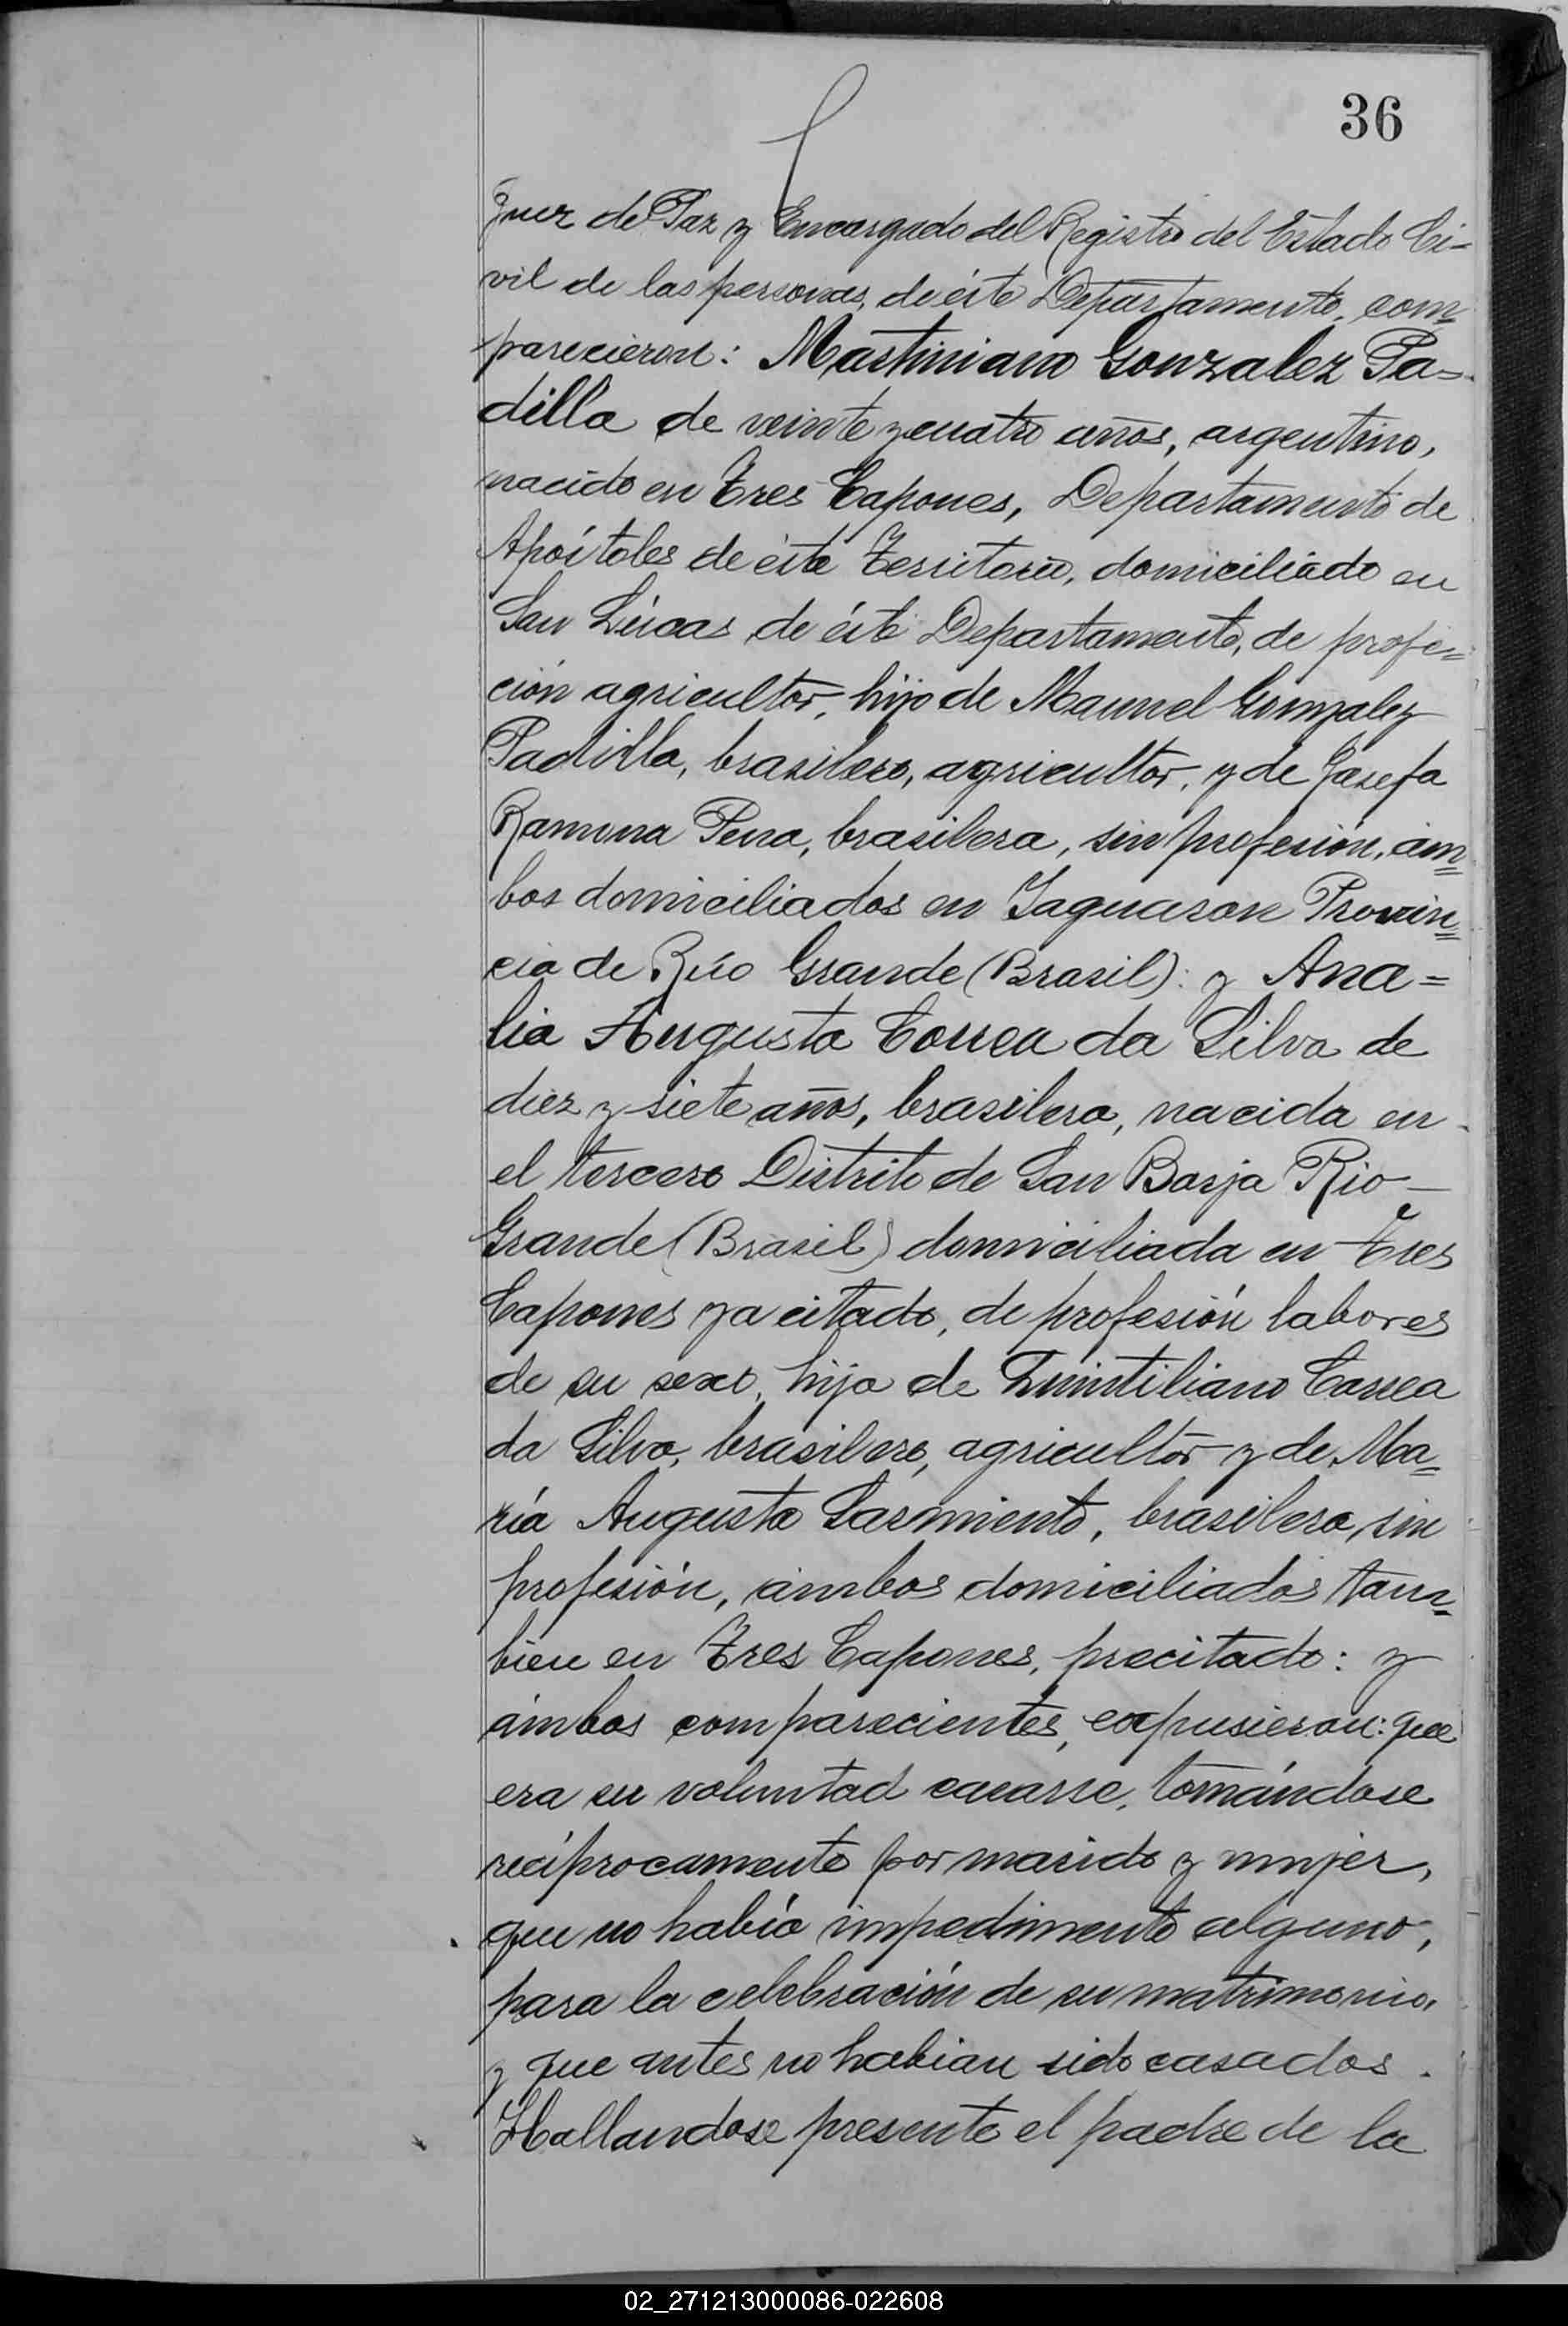 36
Juez de Paz y Encargado del Registro del Estado Ci-
vil de las personas, de éste Departamento, com=
parecieron: Martiniano Gonzalez Pa=
dilla de veinte y cuatro años, argentino,
nacido en Tres Capones, Departamento de
Apóstoles de éste Territorio, domiciliado en
San Lúcas de éste Departamento, de profe=
ción agricultor, hijo de Manuel Gonzalez
Padilla, brasilero, agricultor, y de Josefa
Ramona Pena, brasilera, sin profesión, ám=
bos domiciliados en Jaguaron Provin=
cia de Río Grande (Brasil): y Ana=
lia Augusta Correa da Silva de
diez y siete años, brasilera, nacida en
el tercero Distrito de San Borja Rio-
Grande (Brasil) domiciliada en Tres
Capones ya citado, de profesión labores
de su sexo, hija de Quintiliano Correa
da Silva, brasilero, agricultor y de Ma=
ría Augusta Sarmiento, brasilera, sin
profesión, ámbos domiciliados tam=
bien en Tres Capones, precitado: y
ámbos comparecientes, expusieron: que
era su voluntad casarse, tomándose
recíprocamente por marido y mujer,
que no había impedimento alguno,
para la celebración de su matrimonio,
y que antes no habian sido casados.
Hallandose presente el padre de la
02_271213000086-022608